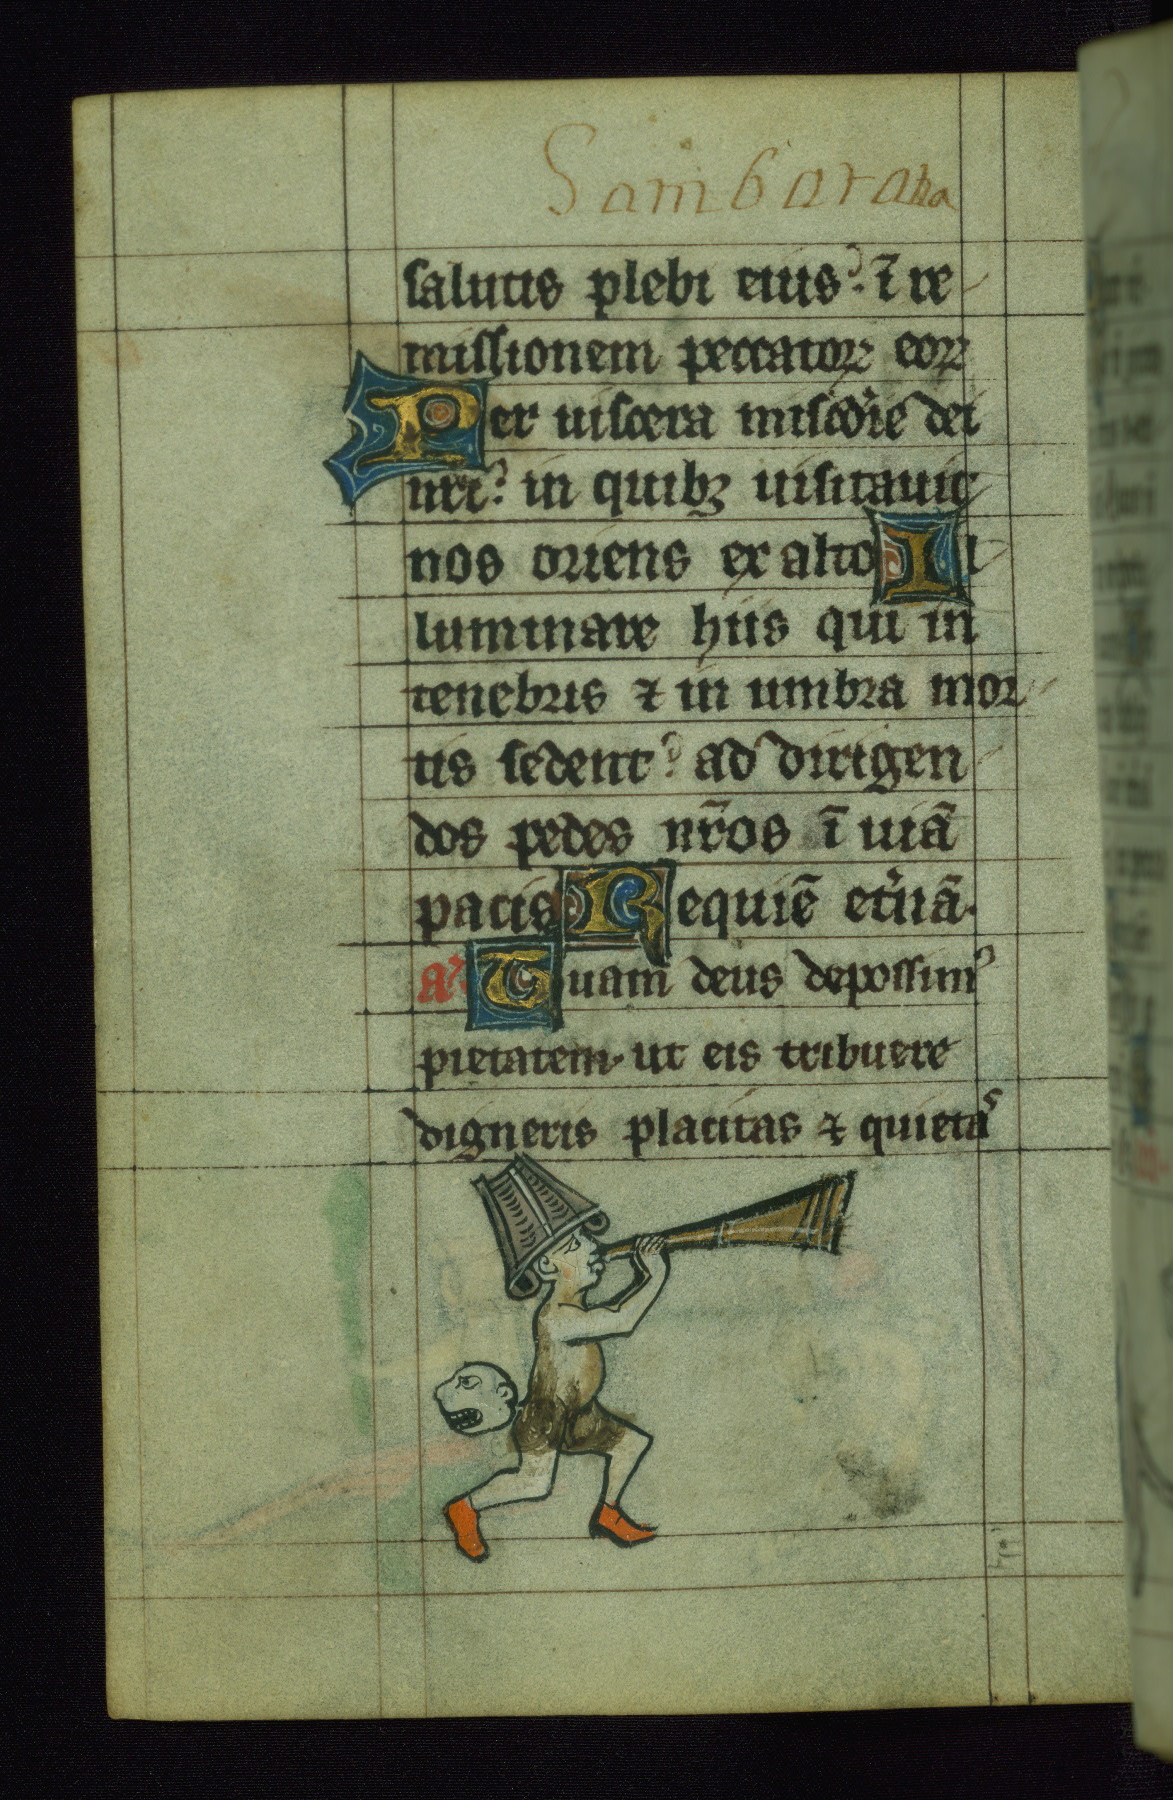 Sambaraha
salutis plebi eius. ī re
missionem peccatoꝝ eoꝝ
Per uiscera mis̄cōr̄ie dei
nr̄i. in quibꝫ uisitauit
nos oriens ex alto Il
luminare hiis qui in
tenebris ⁊ in umbra mor
tis sedent. ad dirigen
dos pedes nr̄os ī uiā
pacis Requiē et̾nā.
a᷑. Tuam deus depossim᷒
pietatem. ut eis tribuere
digneris placitas ⁊ quietas